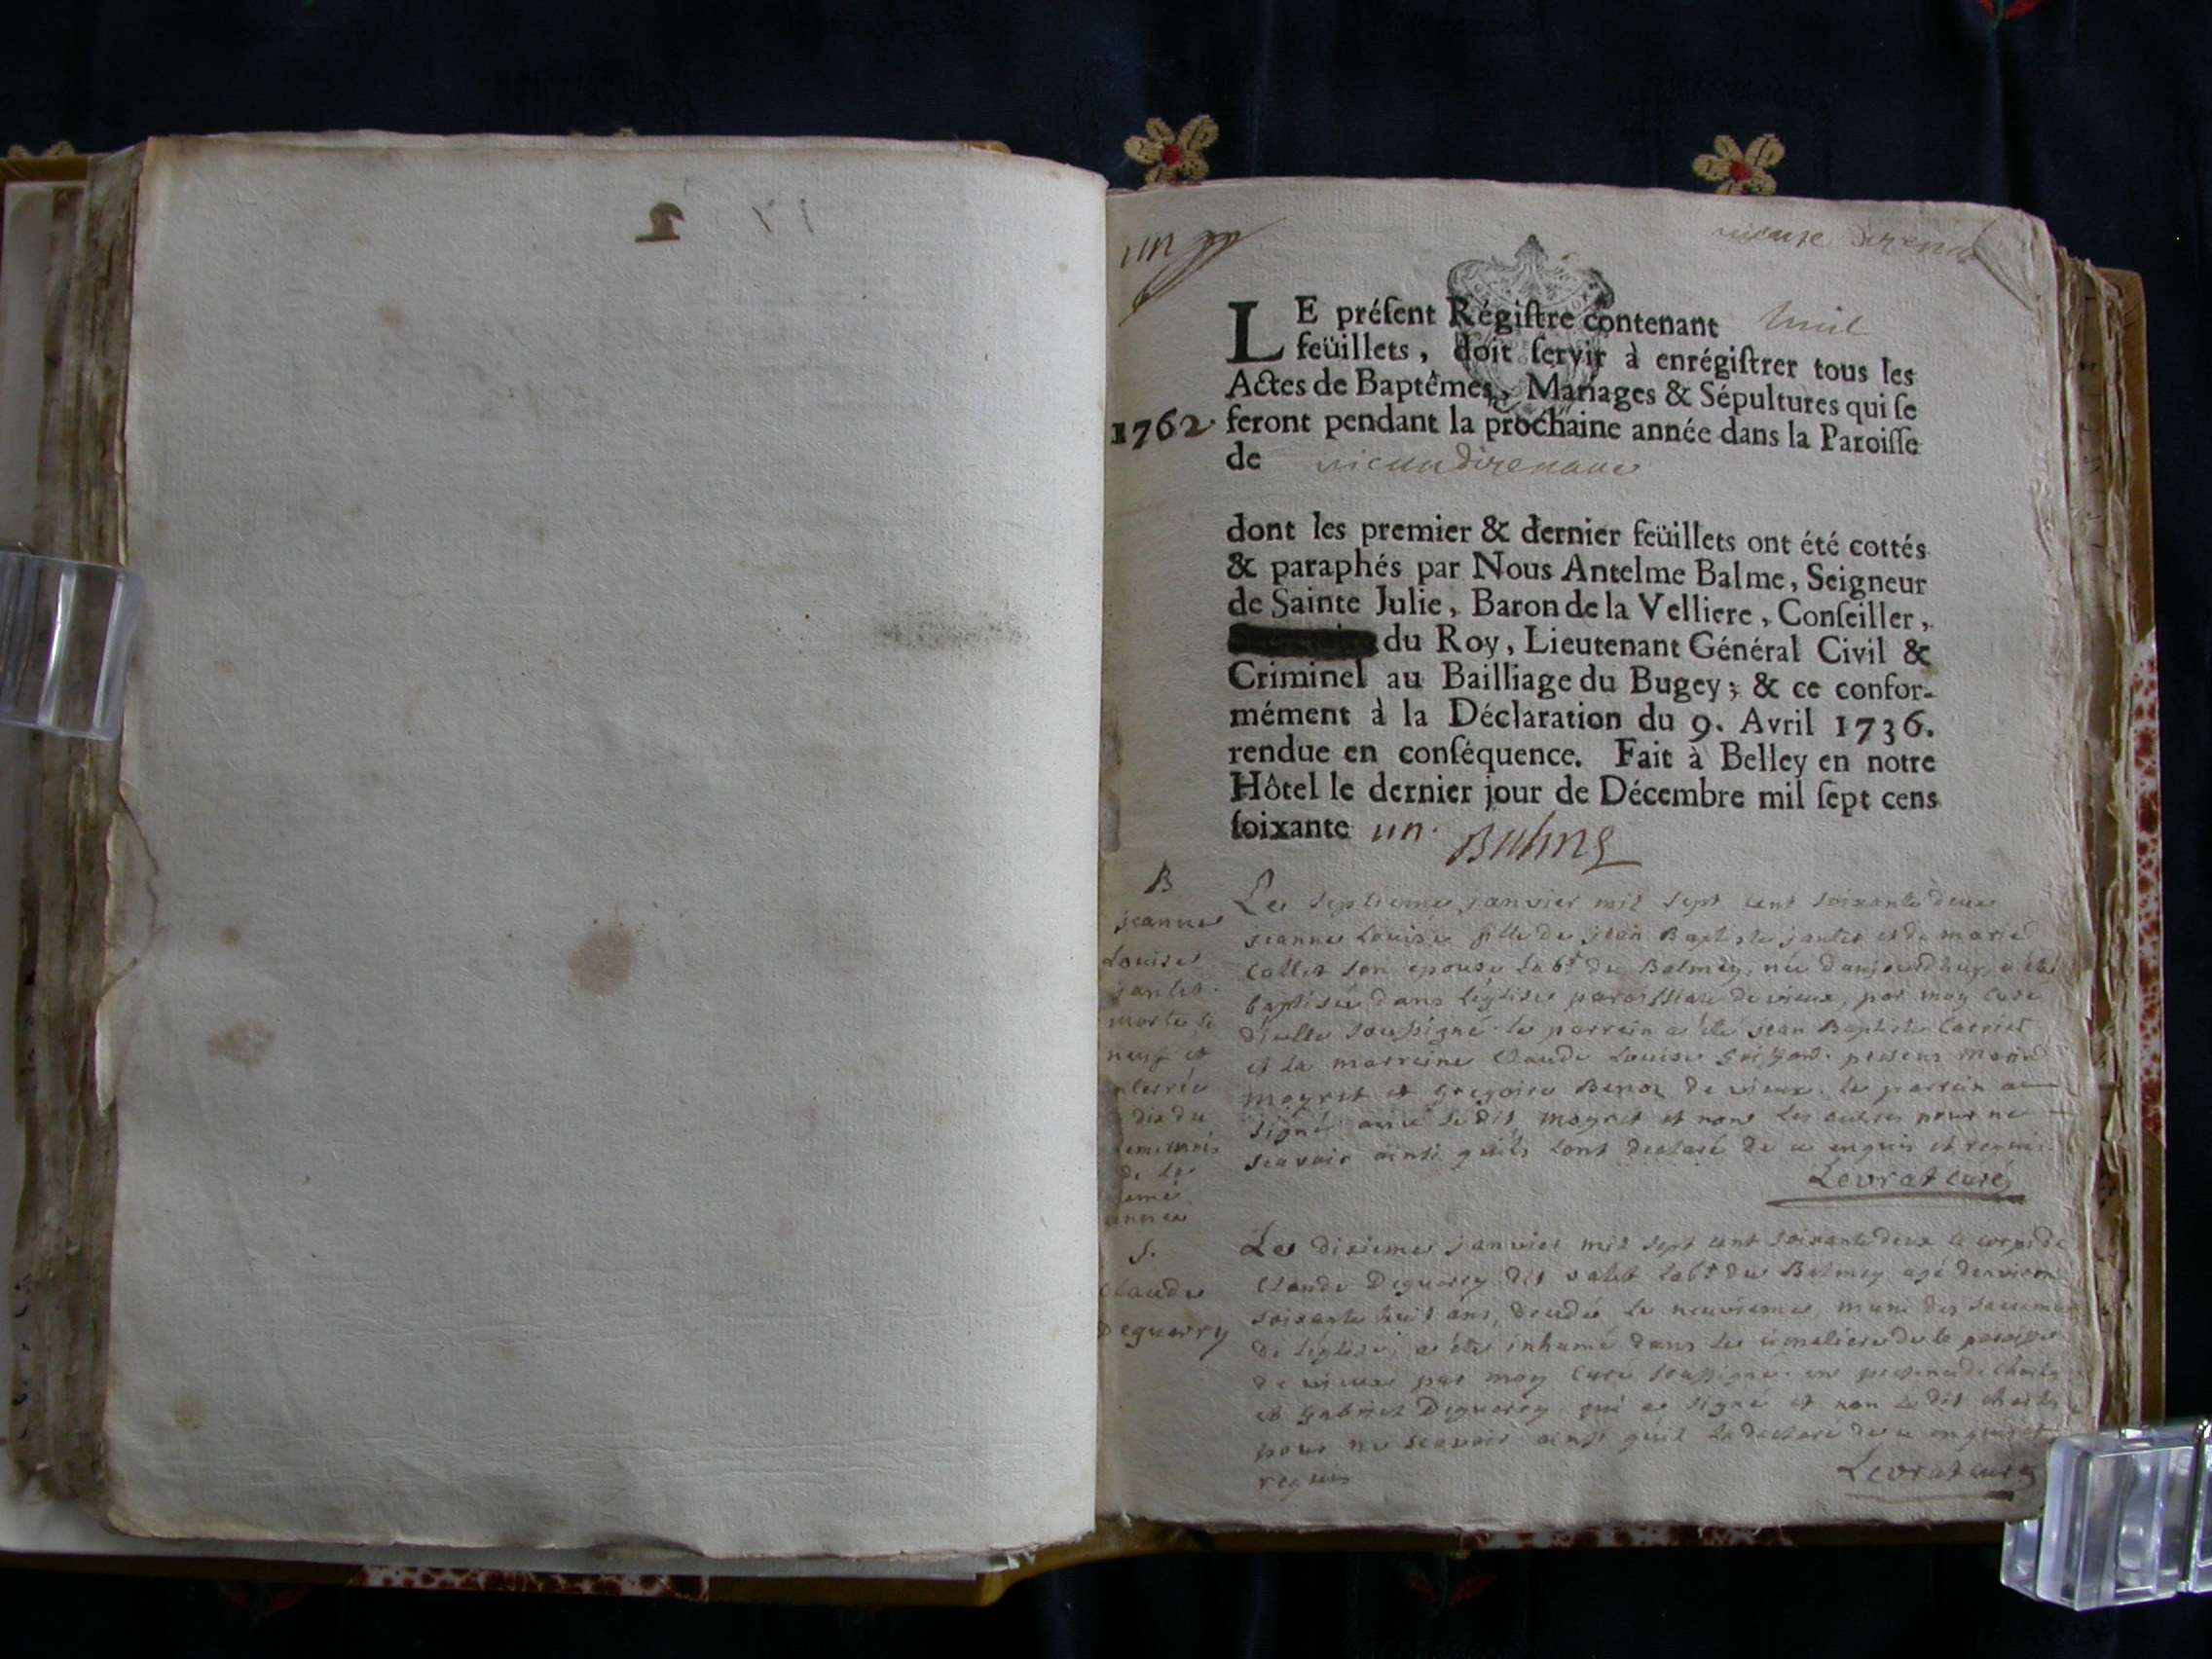 un
LE préſent Régiſtre contenant huit
feüillets, doit ſervir à enrégiſtrer tous les
Actes de Baptêmes, Mariages & Sépultures qui ſe
1762. feront pendant la prochaine année dans la Paroiſſe
de
dont les premier & dernier feüillets ont été cottés
& paraphés par Nous Antelme Balme, Seigneur
de Sainte Julie, Baron de la Velliere, Conſeiller,
du Roy, Lieutenant Général Civil &
Criminel au Bailliage du Bugey; & ce confor-
mément à la Déclaration du 9. Avril 1736.
rendue en conſéquence. Fait à Belley en notre
Hôtel le dernier jour de Décembre mil ſept cens
ſoixante un. Balme
B
jeanne
Louise
jantet.
morte le
neuf et
dix du
de la
année
Le septieme janvier mil sept cent soixante deux
jeanne Louise fille de jean Baptiste jantet et de marie
Collet son epouse labr. du Balmey, née daujourdhuy, a été
baptisée dans l'églises paroissiale de vieux, par moy curé
d'icelle soussigné. le parrein a été jean Baptiste Carrier
et la marreine Claude Louise presens
moyret et gregoire Benoz de vieux. le parrein a
signé avec le dit moyret et non les autres pour ne
scavoir ainsi quils lont declaré de ce enquis et requis.
Levrat curé
S.
Claude
Deguerry
Le dixieme janvier mil sept cent soixante deux le corps de
Claude Deguerry dit valet labr. du Balmey agé denviron
soixante huit ans, decedé le neuvieme, muni des sacremens
de l'église, a été inhumé dans le cimetiere de la paroisse
de vieux par moy curé soussigné. en presence de Charles
et gabriel Deguerry, qui a signé et non le dit charles
pour ne scavoir ainsi quil la declaré de ce enquis et
requis
Levrat curé